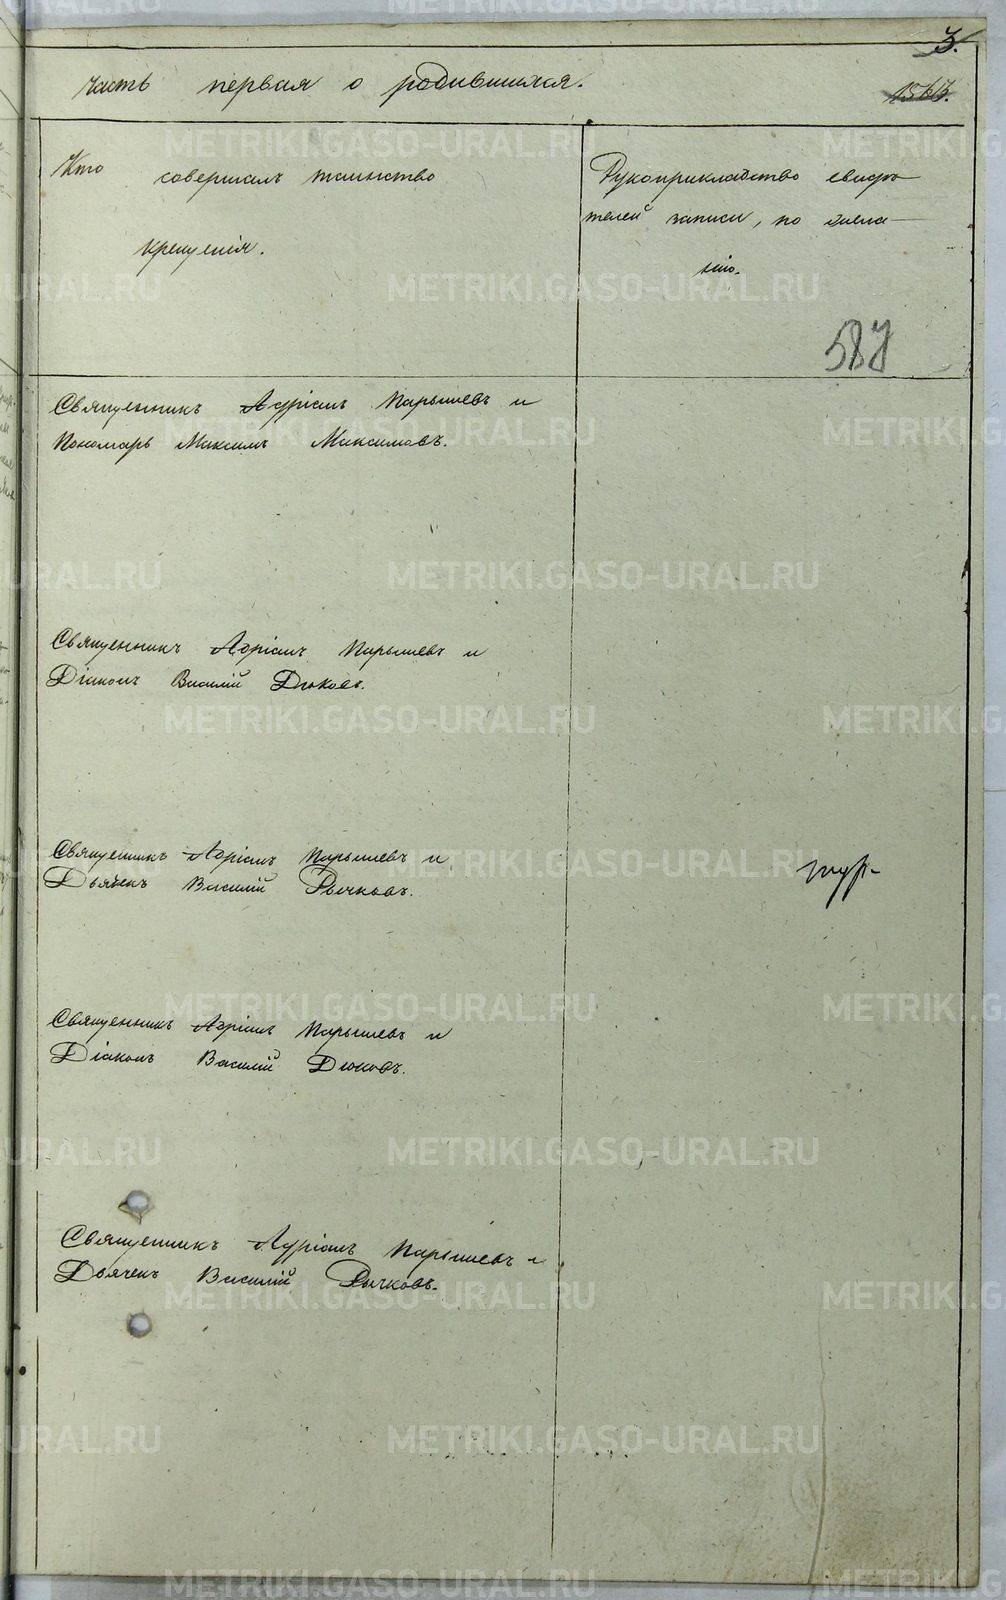 3.
часть первая о родившихся.
1563.
Кто совершалъ таинство
крещенія.
Рукоприкладство свидѣ-
телей записи, по жела-
нію.
587
Священникъ Адріанъ Парышевъ и
Пономарь Максимъ Максимовъ.
Священникъ Адріанъ Парышевъ и
Діаконъ Василій Дюковъ.
Священникъ Адріанъ Парышевъ и
Дьячекъ Василій Рычковъ.
Священникъ Адріанъ Парышевъ и
Діаконъ Василій Дюковъ.
Священникъ Адріанъ Парышевъ и
Дьячекъ Василій Рычковъ.
METRIKI.GASO-URAL.RU